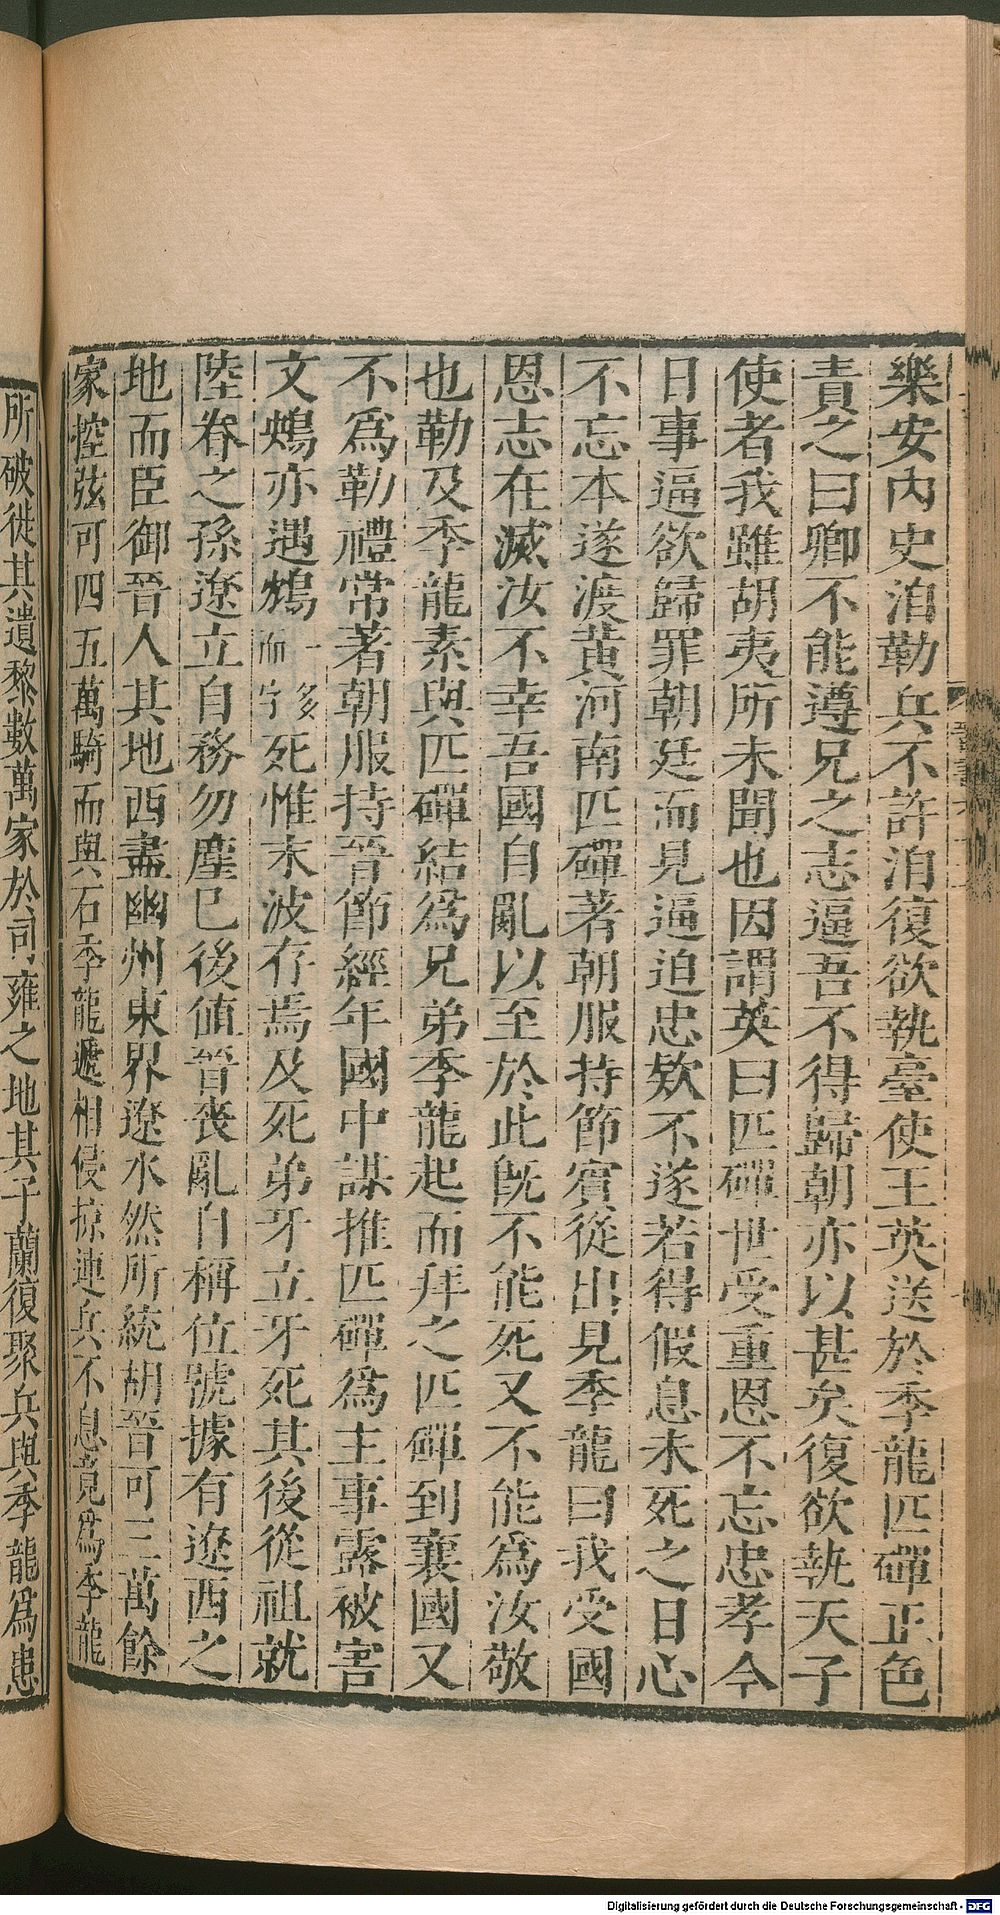 樂安內史洎勒兵不許洎復欲執臺使王英送於季龍匹磾正色
責之曰卿不能遵兄之志逼吾不得歸朝亦以甚矣復欲執天子
使者我雖胡夷所未聞也因謂英曰匹磾世受重恩不忘忠孝今
日事逼欲歸罪朝廷而見逼迫忠欵不遂若得假息未死之日心
不忘本遂渡黃河南匹磾著朝服持節賓從出見季龍曰我受國
恩志在滅汝不幸吾國自亂以至於此旣不能死又不能爲汝敬
也勒及季龍素與匹磾結爲兄弟季龍起而拜之匹磾到襄國又
不爲勒禮常著朝服持晉節經年國中謀推匹磾爲主事露被害
文鴦亦遇鴆一多而字死惟末波存焉及死弟牙立牙死其後從祖就
陸眷之孫遼立自務勿塵已後値晉喪亂自稱位號據有遼西之
地而臣御晉人其地西盡幽州東界遼水然所統胡晉可三萬餘
家控弦可四五萬騎而與石季龍遞相侵掠連兵不息竟爲季龍
所破徙其遺黎數萬家於司雍之地其子蘭復聚兵與季龍爲患
Digitalisierung gefördert durch die Deutsche Forschungsgemeinschaft - DFG